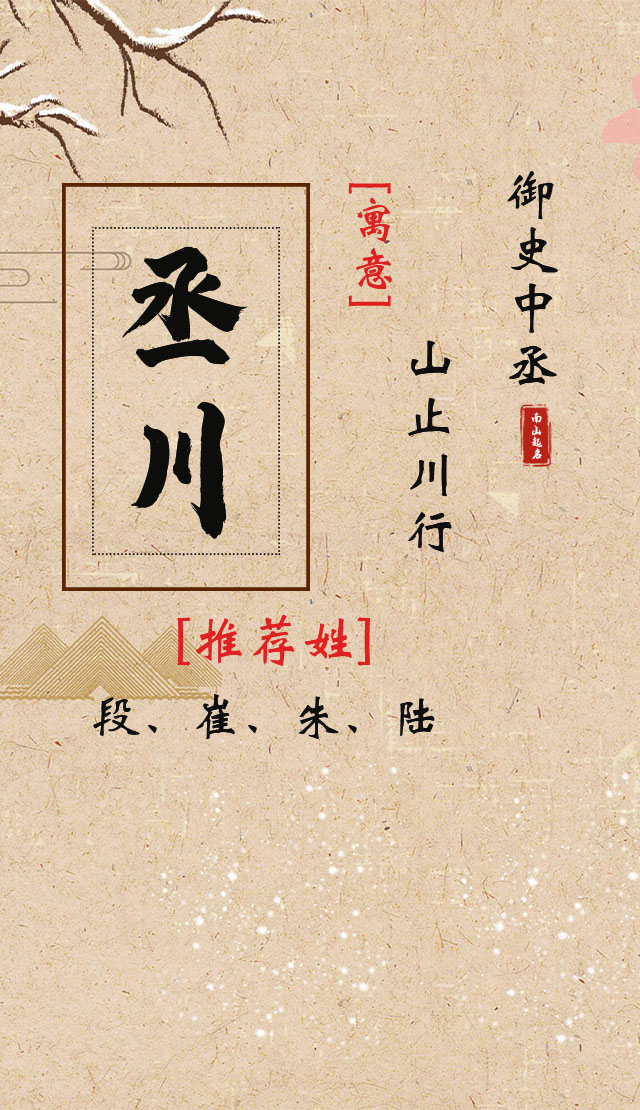 丞川
[寓意]
御史中丞
山止川行
南山起名
[推荐姓]
段、崔、朱、陆